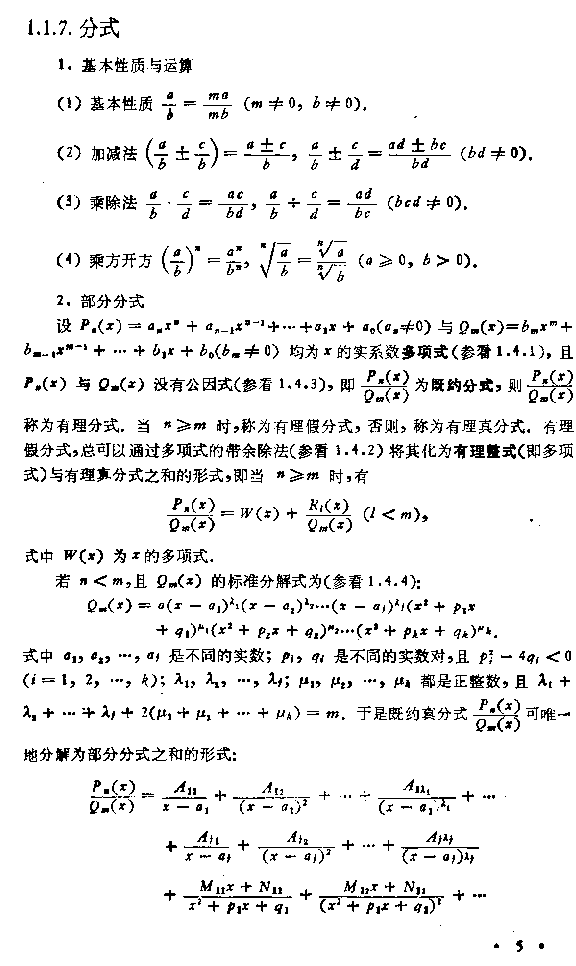 1.1.7. 分式
1. 基本性质与运算
(1) 基本性质 a/b = ma/mb (m ≠ 0, b ≠ 0).
(2) 加减法 (a/b ± c/b) = (a ± c)/b, a/b ± c/d = (ad ± bc)/bd (bd ≠ 0).
(3) 乘除法 a/b · c/d = ac/bd, a/b ÷ c/d = ad/bc (bcd ≠ 0).
(4) 乘方开方 (a/b)ⁿ = aⁿ/bⁿ, ⁿ√(a/b) = ⁿ√a/ⁿ√b (a ≥ 0, b > 0).
2. 部分分式
设 Pₙ(x) = aₙxⁿ + aₙ₋₁xⁿ⁻¹ + ··· + a₁x + a₀(aₙ≠0) 与 Qₘ(x)=bₘxᵐ +
bₘ₋₁xᵐ⁻¹ + ··· + b₁x + b₀(bₘ ≠ 0) 均为 x 的实系数多项式(参看1.4.1), 且
Pₙ(x) 与 Qₘ(x) 没有公因式(参看 1.4.3), 即 Pₙ(x)/Qₘ(x) 为既约分式, 则 Pₙ(x)/Qₘ(x)
称为有理分式. 当 n ≥ m 时,称为有理假分式, 否则, 称为有理真分式. 有理
假分式,总可以通过多项式的带余除法(参看 1.4.2) 将其化为有理整式(即多项
式)与有理真分式之和的形式,即当 n ≥ m 时,有
Pₙ(x)/Qₘ(x) = W(x) + Rₗ(x)/Qₘ(x) (l < m),
式中 W(x) 为 x 的多项式.
若 n < m, 且 Qₘ(x) 的标准分解式为(参看 1.4.4):
Qₘ(x) = a(x − a₁)^λ₁(x − a₂)^λ₂···(x − aⱼ)^λⱼ(x² + p₁x
+ q₁)^μ₁(x² + p₂x + q₂)^μ₂···(x² + pₖx + qₖ)^μₖ.
式中 a₁, a₂, ···, aⱼ 是不同的实数; pᵢ, qᵢ 是不同的实数对,且 pᵢ² − 4qᵢ < 0
(i = 1, 2, ···, k); λ₁, λ₂, ···, λⱼ; μ₁, μ₂, ···, μₖ 都是正整数, 且 λ₁ +
λ₂ + ··· + λⱼ + 2(μ₁ + μ₂ + ··· + μₖ) = m. 于是既约真分式 Pₙ(x)/Qₘ(x) 可唯一
地分解为部分分式之和的形式:
Pₙ(x)/Qₘ(x) = A₁₁/(x − a₁) + A₁₂/(x − a₁)² + ··· + A₁λ₁/(x − a₁)^λ₁ + ···
+ Aⱼ₁/(x − aⱼ) + Aⱼ₂/(x − aⱼ)² + ··· + Aⱼλⱼ/(x − aⱼ)^λⱼ
+ (M₁₁x + N₁₁)/(x² + p₁x + q₁) + (M₁₂x + N₁₂)/(x² + p₁x + q₁)² + ···
• 5 •